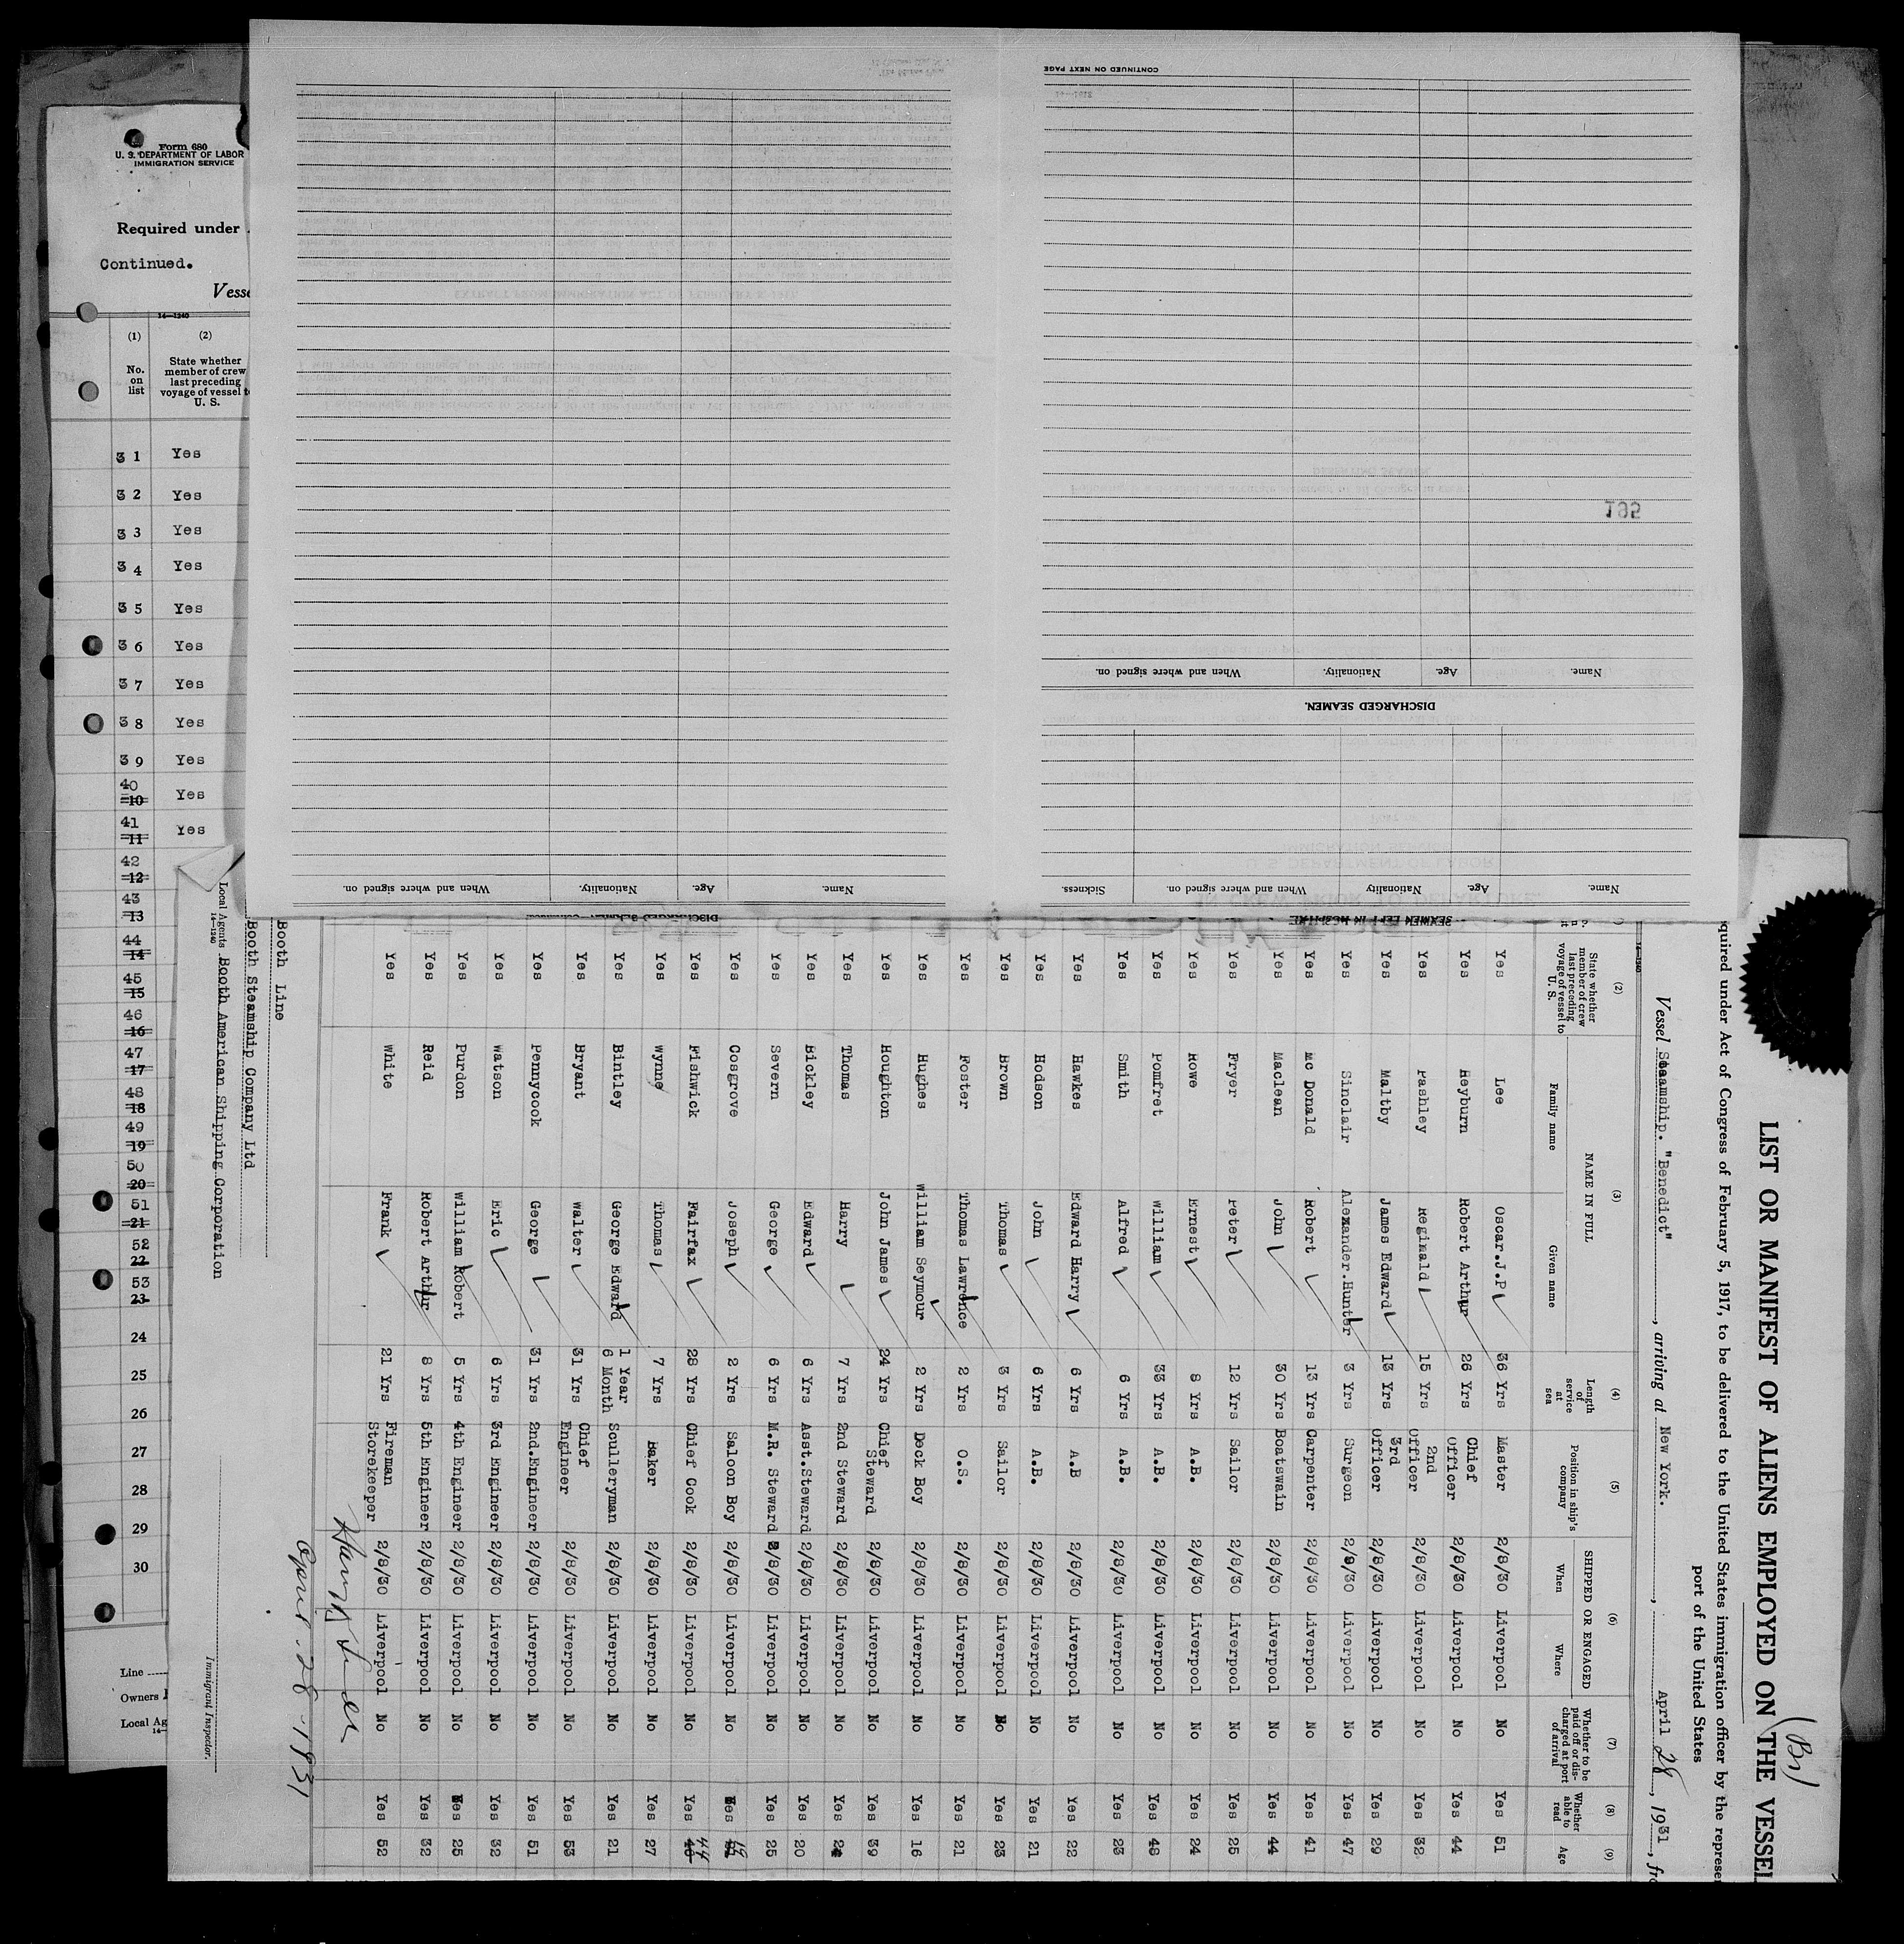 Form 680
U. S. DEPARTMENT OF LABOR
IMMIGRATION SERVICE
Required under
Continued.
Vesse
14—1240
(1) (2)
No. on list State whether member of crew last preceding voyage of vessel to U. S.
31 Yes
32 Yes
33 Yes
34 Yes
35 Yes
36 Yes
37 Yes
38 Yes
39 Yes
40 10 Yes
41 11 Yes
42 12
43 13
44 14
45 15
46 16
47 17
48 18
49 19
50 20
51 21
52 22
53 23
24
25
26
27
28
29
30
Line
Owners
Local Ag
14—
CONTINUED ON NEXT PAGE
195
Name. Age. Nationality. When and where signed on.
DISCHARGED SEAMEN.
Name. Age. Nationality When and where signed on. Sickness.
SEAMEN LEFT IN HOSPITAL
Name. Age. Nationality. When and where signed on.
(Br)
LIST OR MANIFEST OF ALIENS EMPLOYED ON THE VESSEL
quired under Act of Congress of February 5, 1917, to be delivered to the United States immigration officer by the represen
port of the United States
Vessel Steamship. "Benedict", arriving at New York., April 28, 1931, fro
14—1240
(2) (3) (4) (5) (6) (7) (8) (9)
State whether member of crew last preceding voyage of vessel to U. S. NAME IN FULL Family name Given name Length of service at sea Position in ship's company SHIPPED OR ENGAGED When Where Whether to be paid off or discharged at port of arrival Whether able to read Age
Yes Lee Oscar.J.P 36 Yrs Master 2/8/30 Liverpool No Yes 51
Yes Heyburn Robert Arthur 26 Yrs Chief Officer 2/8/30 Liverpool No Yes 44
Yes Pashley Reginald 15 Yrs 2nd Officer 2/8/30 Liverpool No Yes 32
Yes Maltby James Edward 13 Yrs 3rd Officer 2/8/30 Liverpool No Yes 29
Yes Sinclair Alexander.Hunter 3 Yrs Surgeon 2/8/30 Liverpool No Yes 47
Yes Mc Donald Robert 13 Yrs Carpenter 2/8/30 Liverpool No Yes 41
Yes Maclean John 30 Yrs Boatswain 2/8/30 Liverpool No Yes 44
Yes Fryer Peter 12 Yrs Sailor 2/8/30 Liverpool No Yes 25
Yes Rowe Ernest 8 Yrs A.B. 2/8/30 Liverpool No Yes 24
Yes Pomfret William 33 Yrs A.B. 2/8/30 Liverpool No Yes 48
Yes Smith Alfred 6 Yrs A.B. 2/8/30 Liverpool No Yes 23
Yes Hawkes Edward Harry 6 Yrs A.B 2/8/30 Liverpool No Yes 22
Yes Hodson John 6 Yrs A.B. 2/8/30 Liverpool No Yes 21
Yes Brown Thomas 3 Yrs Sailor 2/8/30 Liverpool No Yes 23
Yes Foster Thomas Lawrence 2 Yrs O.S. 2/8/30 Liverpool No Yes 21
Yes Hughes William Seymour 2 Yrs Deck Boy 2/8/30 Liverpool No Yes 16
Yes Houghton John James 24 Yrs Chief Steward 2/8/30 Liverpool No Yes 39
Yes Thomas Harry 7 Yrs 2nd Steward 2/8/30 Liverpool No Yes 24
Yes Bickley Edward 6 Yrs Asst.Steward 2/8/30 Liverpool No Yes 20
Yes Severn George 6 Yrs M.R. Steward 2/8/30 Liverpool No Yes 25
Yes Cosgrove Joseph 2 Yrs Saloon Boy 2/8/30 Liverpool No Yes 19
Yes Fishwick Fairfax 28 Yrs Chief Cook 2/8/30 Liverpool No Yes 44
Yes Wynne Thomas 7 Yrs Baker 2/8/30 Liverpool No Yes 27
Yes Bintley George Edward 1 Year 6 Month Sculleryman 2/8/30 Liverpool No Yes 21
Yes Bryant Walter 31 Yrs Chief Engineer 2/8/30 Liverpool No Yes 53
Yes Pennycook George 31 Yrs 2nd.Engineer 2/8/30 Liverpool No Yes 51
Yes Watson Eric 6 Yrs 3rd Engineer 2/8/30 Liverpool No Yes 32
Yes Purdon William Robert 5 Yrs 4th Engineer 2/8/30 Liverpool No Yes 25
Yes Reid Robert Arthur 8 Yrs 5th Engineer 2/8/30 Liverpool No Yes 32
Yes White Frank 21 Yrs Fireman Storekeeper 2/8/30 Liverpool No Yes 52
Booth Line
Booth Steamship Company Ltd
Local Agents Booth American Shipping Corporation
14—1240
April-28-1931
Immigrant Inspector.